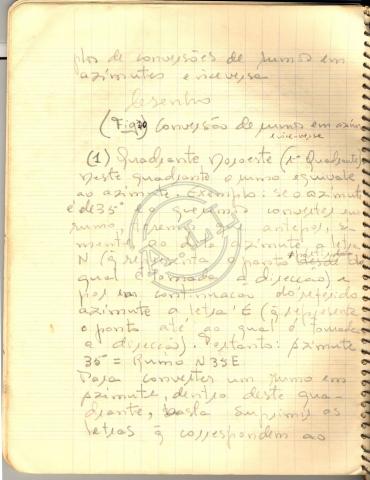 plos de conversões de rumos em
azimutes e vice versa
Desenho
(Fig 20) Conversão de rumos em azim
e vice-verse
(1) Quadrante Noroeste (1º Quadrante)
neste quadrante o rumo equivale
ao azimute. Exemplo: se o azimut
é de 35° e queremos convertes em
rumo, teremos antepos, so-
mente ao dito azimute, a letra
N (q representa o ponto
qual é tomada a direcção) e
pos em continuacao do referido
azimute a letra E (q representa
o ponto até ao qual é tomada
a direcção). Portanto: Azimute
35° = Rumo N35E
Para converter um rumo em
azimute, dentro deste qua-
drante, basta suprimir as
letras q correspondem ao